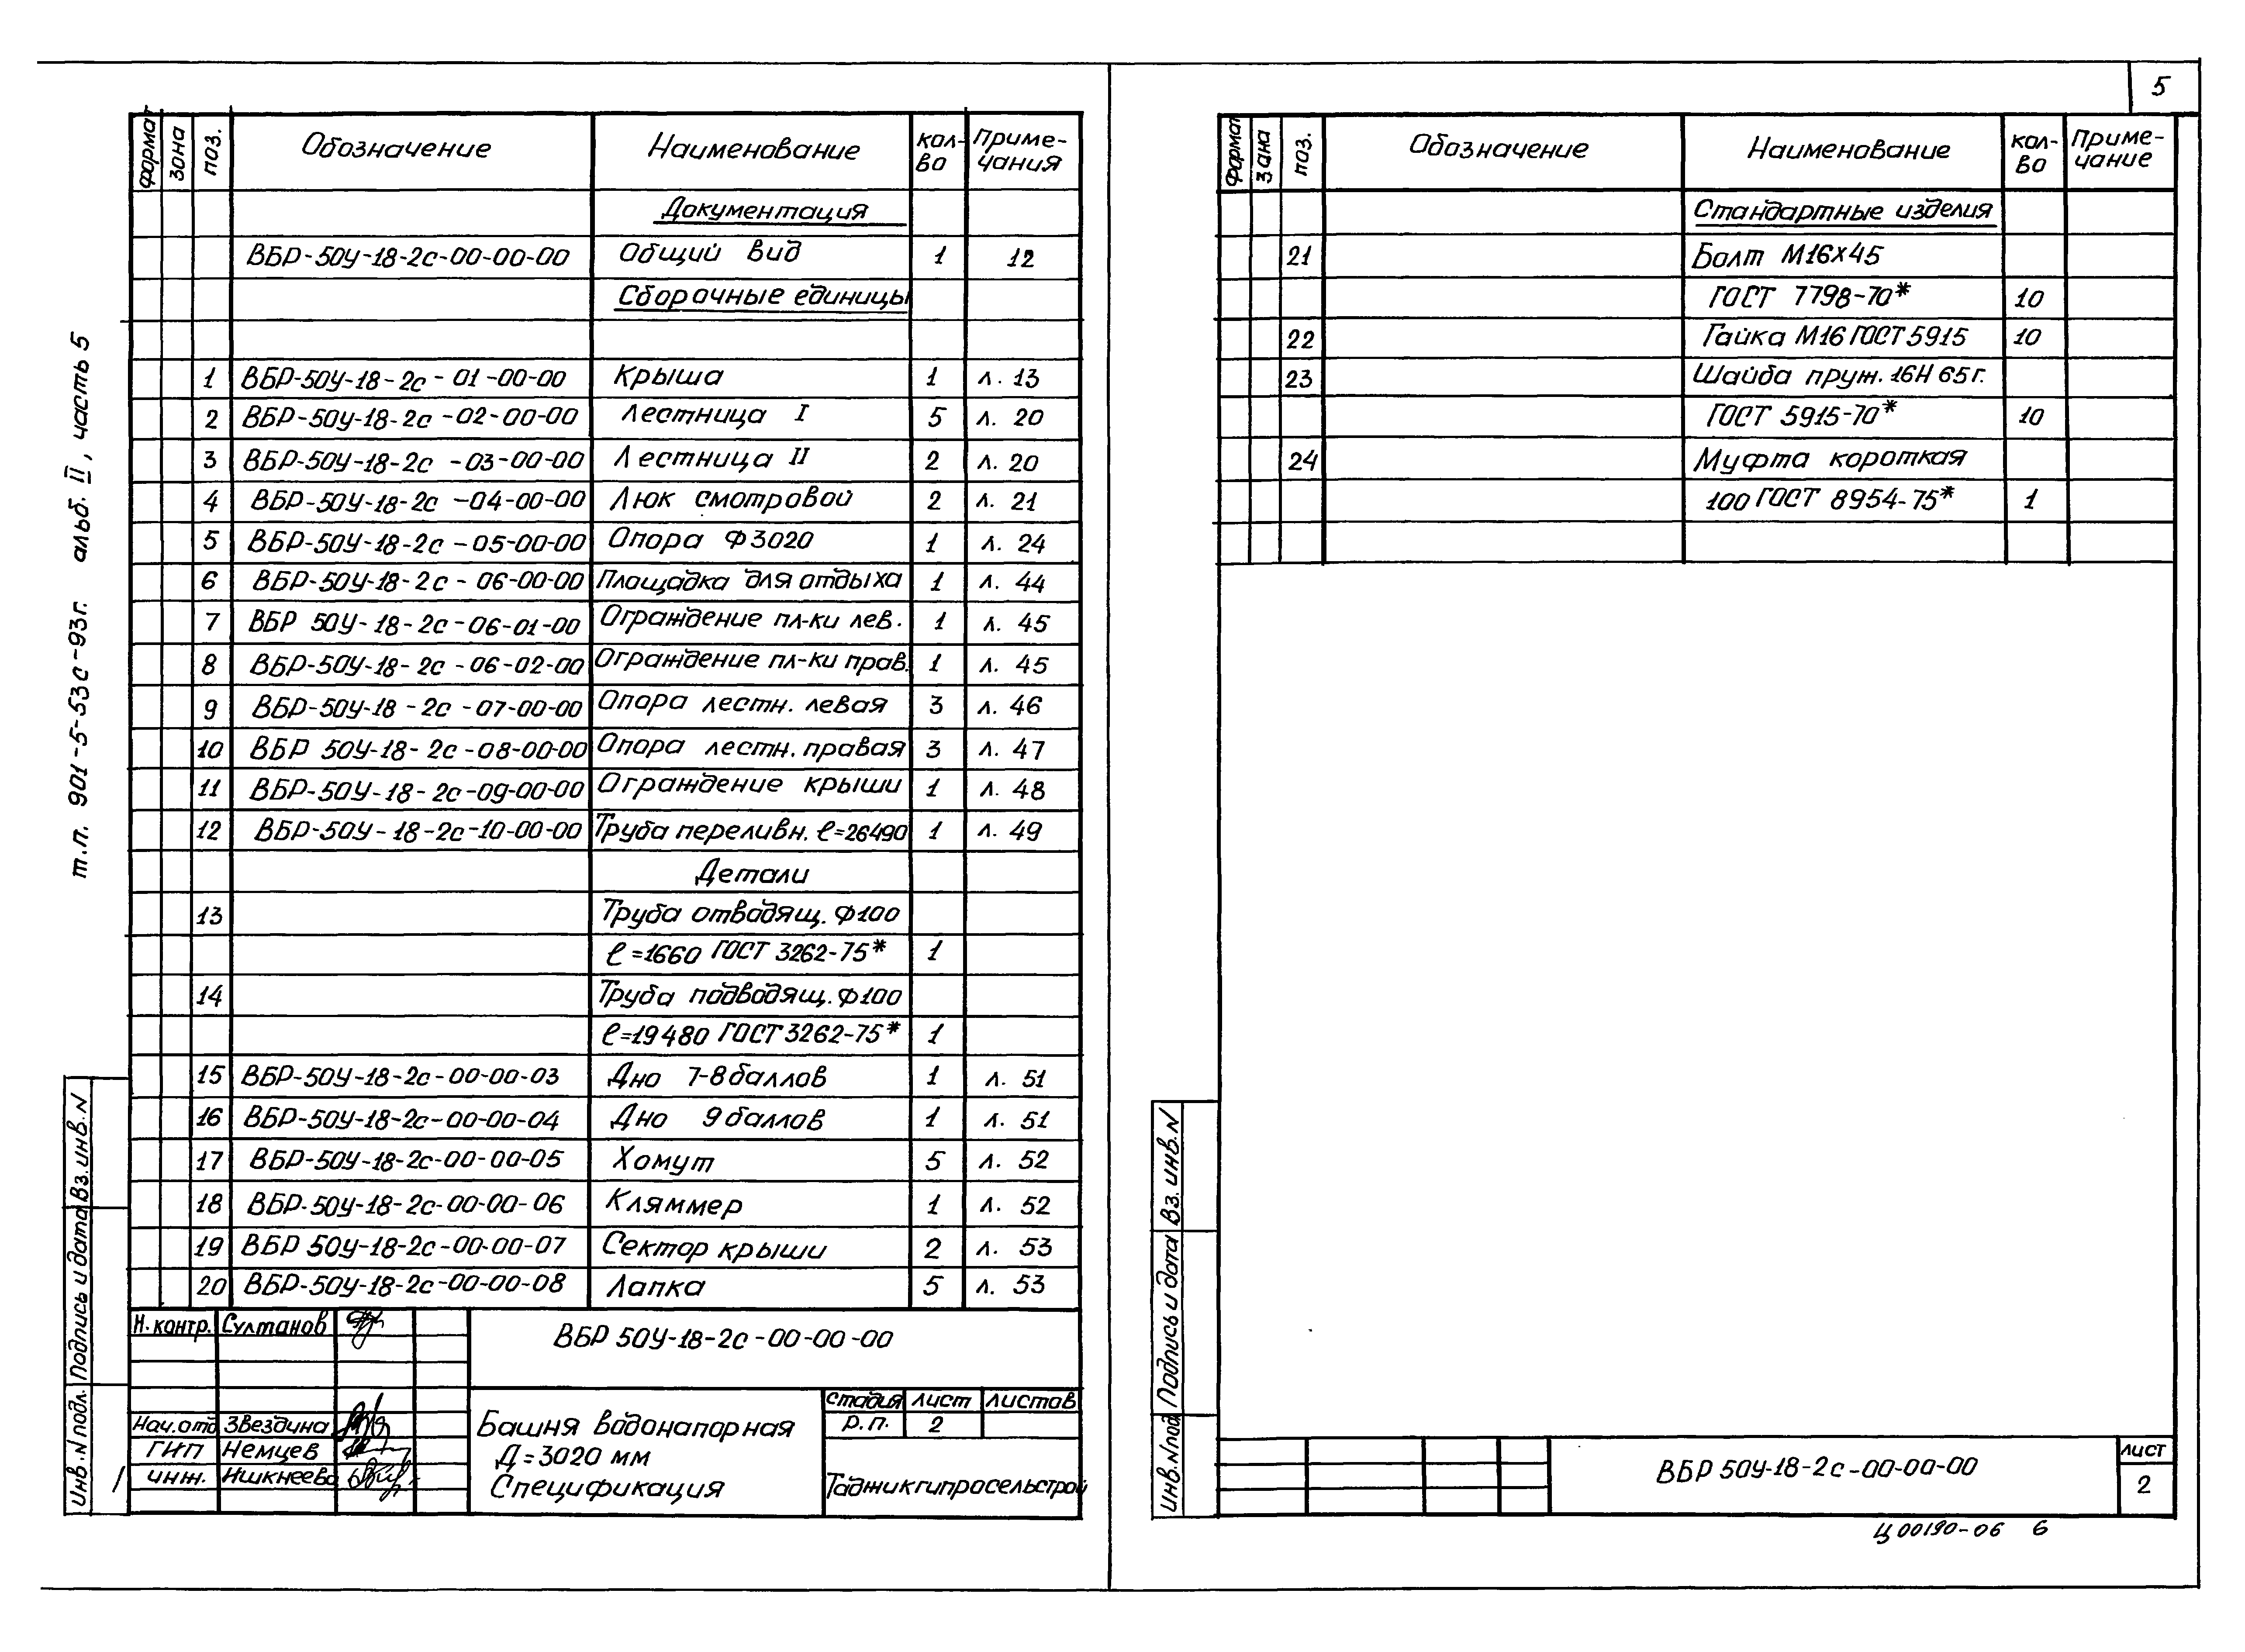 5
т.п. 901-5-53с-93г. альб. II, часть 5
формат зона поз. Обозначение Наименование кол-во Примечания
Документация
ВБР-50У-18-2с-00-00-00 Общий вид 1 12
Сборочные единицы
1 ВБР-50У-18-2с-01-00-00 Крыша 1 л. 13
2 ВБР-50У-18-2с-02-00-00 Лестница I 5 л. 20
3 ВБР-50У-18-2с-03-00-00 Лестница II 2 л. 20
4 ВБР-50У-18-2с-04-00-00 Люк смотровой 2 л. 21
5 ВБР-50У-18-2с-05-00-00 Опора Ф3020 1 л. 24
6 ВБР-50У-18-2с-06-00-00 Площадка для отдыха 1 л. 44
7 ВБР 50У-18-2с-06-01-00 Ограждение пл-ки лев. 1 л. 45
8 ВБР-50У-18-2с-06-02-00 Ограждение пл-ки прав. 1 л. 45
9 ВБР-50У-18-2с-07-00-00 Опора лестн. левая 3 л. 46
10 ВБР 50У-18-2с-08-00-00 Опора лестн. правая 3 л. 47
11 ВБР-50У-18-2с-09-00-00 Ограждение крыши 1 л. 48
12 ВБР-50У-18-2с-10-00-00 Труба переливн. ℓ=26490 1 л. 49
Детали
13 Труба отводящ. Ф100
ℓ=1660 ГОСТ 3262-75* 1
14 Труба подводящ. Ф100
ℓ=19480 ГОСТ 3262-75* 1
15 ВБР-50У-18-2с-00-00-03 Дно 7-8 баллов 1 л. 51
16 ВБР-50У-18-2с-00-00-04 Дно 9 баллов 1 л. 51
17 ВБР-50У-18-2с-00-00-05 Хомут 5 л. 52
18 ВБР-50У-18-2с-00-00-06 Кляммер 1 л. 52
19 ВБР 50У-18-2с-00-00-07 Сектор крыши 2 л. 53
20 ВБР-50У-18-2с-00-00-08 Лапка 5 л. 53
Н. контр. Султанов
ВБР 50У-18-2с-00-00-00
Нач. отд Звездина
ГИП Немцев
инж. Ишкнеева
Башня водонапорная
Д=3020 мм
Спецификация
стадия лист листов
р.п. 2
Таджикгипросельстрой
Инв. N подл. Подпись и дата Вз. инв. N
формат зона поз. Обозначение Наименование кол-во Примечание
Стандартные изделия
21 Болт М16х45
ГОСТ 7798-70* 10
22 Гайка М16 ГОСТ 5915 10
23 Шайба пруж. 16Н 65г.
ГОСТ 5915-70* 10
24 Муфта короткая
100 ГОСТ 8954-75* 1
Инв. N под Подпись и дата Вз. инв. N
ВБР 50У-18-2с-00-00-00
лист
2
Ц 00190-06 6